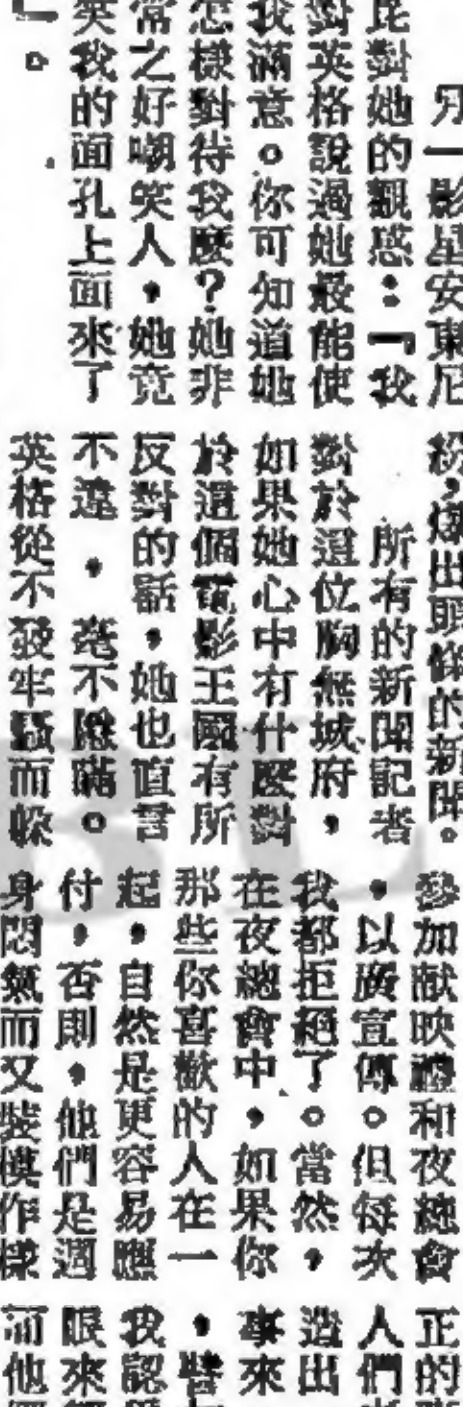 另一影星安東尼
毘對她的觀感：『我
對英格說過她最能使
我滿意。你可知道她
怎樣對待我麼？她非
常之好嘲笑人，她竟
笑我的面孔上面來了
』。
出頭條的新聞。
所有的新聞記者
對於這位胸無城府，
如果她心中有什麼對
於這個電影王國有所
反對的話，她也直言
不違，毫不隱瞞。
英格從不發牢騷而躲
參加献映禮和夜總會
，以廣宣傳。但每次
我都拒絕了。當然，
在夜總會中，如果你
那些你喜歡的人在一
起，自然是更容易應
付，否則，他們是週
身悶氣而又裝模作樣
正的
人們
造出
事來
，譬
我認
眼來
而他